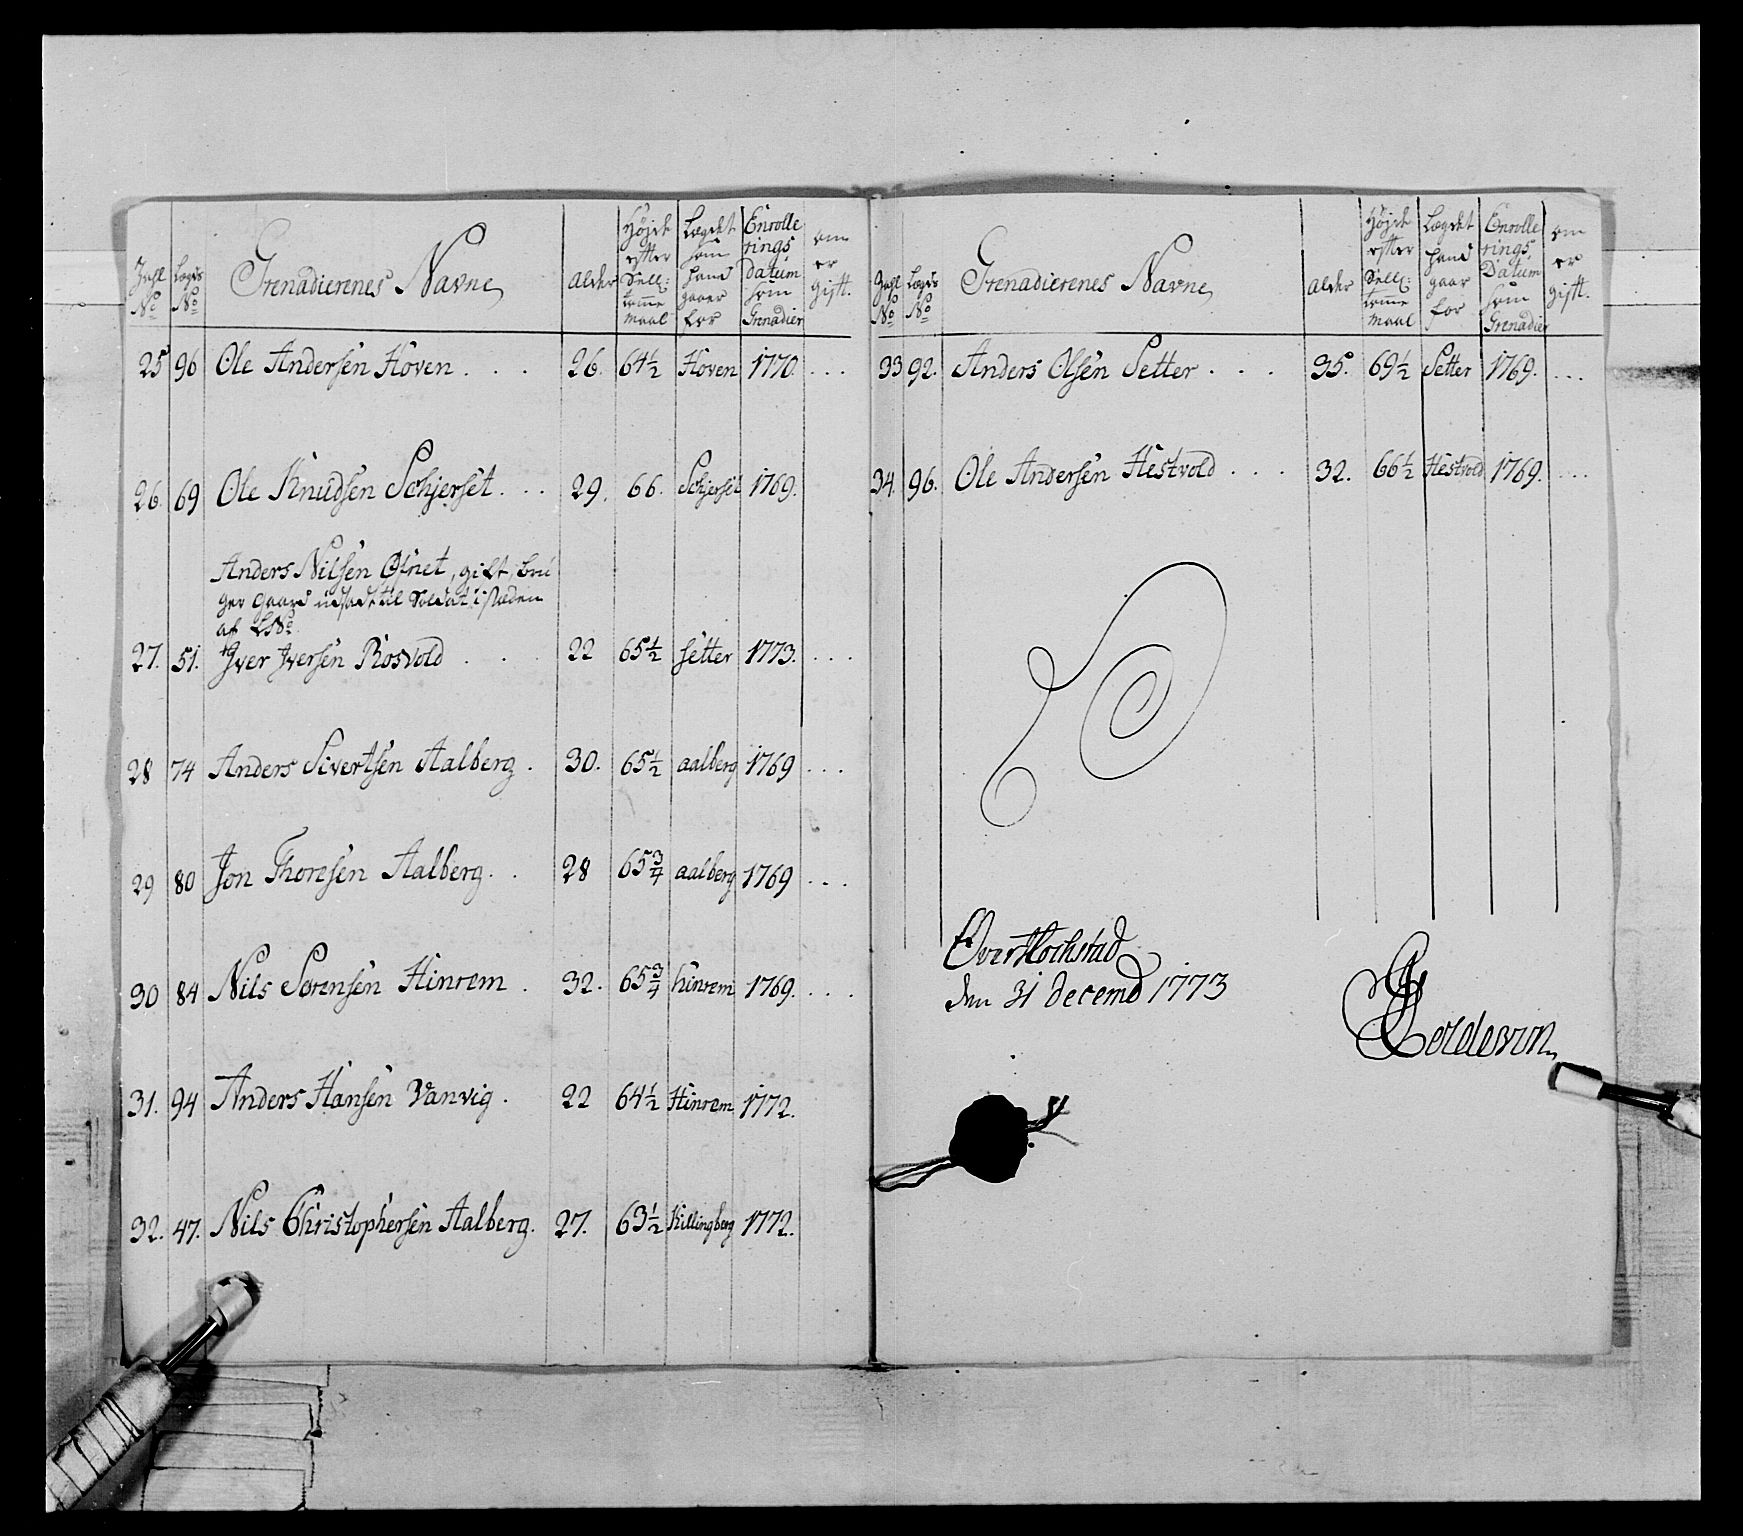 Tahl No | Lægds No | Grenadierenes Navne | alder | Højde efter Sell: tomme maal | Lægdet som hand gaaer for | Enrolle rings Datum som Grenadier | om er gift.
25 | 96 | Ole Andersen Hoven . . . | 26. | 64½ | Hoven | 1770. | . . .
26. | 69 | Ole Knudsen Schjerset . . . | 29. | 66. | Schjerset | 1769.
Anders Nilsen Øfnet, gift, bru
ger Gaard udsadt til Soldat i stæden
af LNo
27. | 51. | Iver Iversen Rosvold . . . | 22 | 65½ | Setter | 1773. | . . .
28 | 74 | Anders Sivertsen Aalberg . | 30. | 65½ | aalberg | 1769 | . . .
29 | 80 | Jon Thoresen Aalberg . . | 28 | 65¾ | aalberg | 1769 | . . .
30 | 84 | Nils Sørensen Hinrem . | 32. | 65¾ | hinrem | 1769. | . . .
31. | 94 | Anders Hansen Vanvig . | 22 | 64½ | Hinrem | 1772.
32. | 47. | Nils Christophersen Aalberg. | 27. | 63½ | Killingberg | 1772.
Tahl No | Lægds No | Grenadierenes Navne | alder | Højde efter Sell: tomme maal | Lægdet hand gaar for | Enrolle rings Datum som Grenadier | om er gift.
33 | 92. | Anders Olsen Setter . . . | 35. | 69½ | Setter | 1769. | . . .
34. | 96. | Ole Andersen Hestvold . . . | 32. | 66½ | Hestvold | 1769. | . . .
Over Hochstad
den 31 decemb 1773